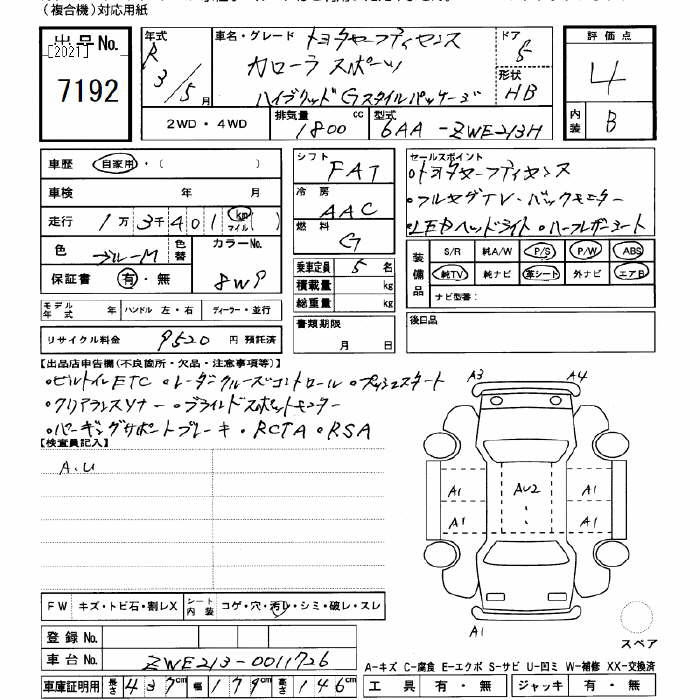 (複合機)対応用紙
出品No.
[2021]
7192
年式 R 3/5 月
車名・グレード トヨタセーフティセンス
カローラ スポーツ
ハイブリッドGスタイルパッケージ
ドア 5
形状 HB
評価点 4
内装 B
2WD・4WD
排気量 1800 cc
型式 6AA-ZWE213H
車歴 自家用・( )
車検 年 月
走行 1万3千401 (km マイル)
色 ブルーM 色替
カラーNo. 8W9
保証書 有・無
モデル年式 年 ハンドル 左・右 ディーラー・並行
リサイクル料金 9520 円 預託済
シフト FAT
冷房 AAC
燃料 G
乗車定員 5 名
積載量 kg
総重量 kg
書類期限 月 日
セールスポイント
・トヨタセーフティセンス
・フルセグTV・バックモニター
・LEDヘッドライト・ハーフレザーシート
装備品 S/R 純A/W P/S P/W ABS
純TV 純ナビ 革シート 外ナビ エアB
ナビ型番:
後日品
【出品店申告欄(不良箇所・欠品・注意事項等)】
・ビルトインETC ・レーダークルーズコントロール ・プッシュスタート
・クリアランスソナー ・ブラインドスポットモニター
・パーキングサポートブレーキ・RCTA・RSA
【検査員記入】
A.U
A3 A4
A1 AU2 A1
A1 A1
A1
スペア
FW キズ・トビ石・割レX シート内装 コゲ・穴・汚レ・シミ・破レ・スレ
登録No.
車台No. ZWE213-0011726
車庫証明用 長さ 437cm 幅 179cm 高さ 146cm
A-キズ C-腐食 E-エクボ S-サビ U-凹ミ W-補修 XX-交換済
工具 有・無 ジャッキ 有・無